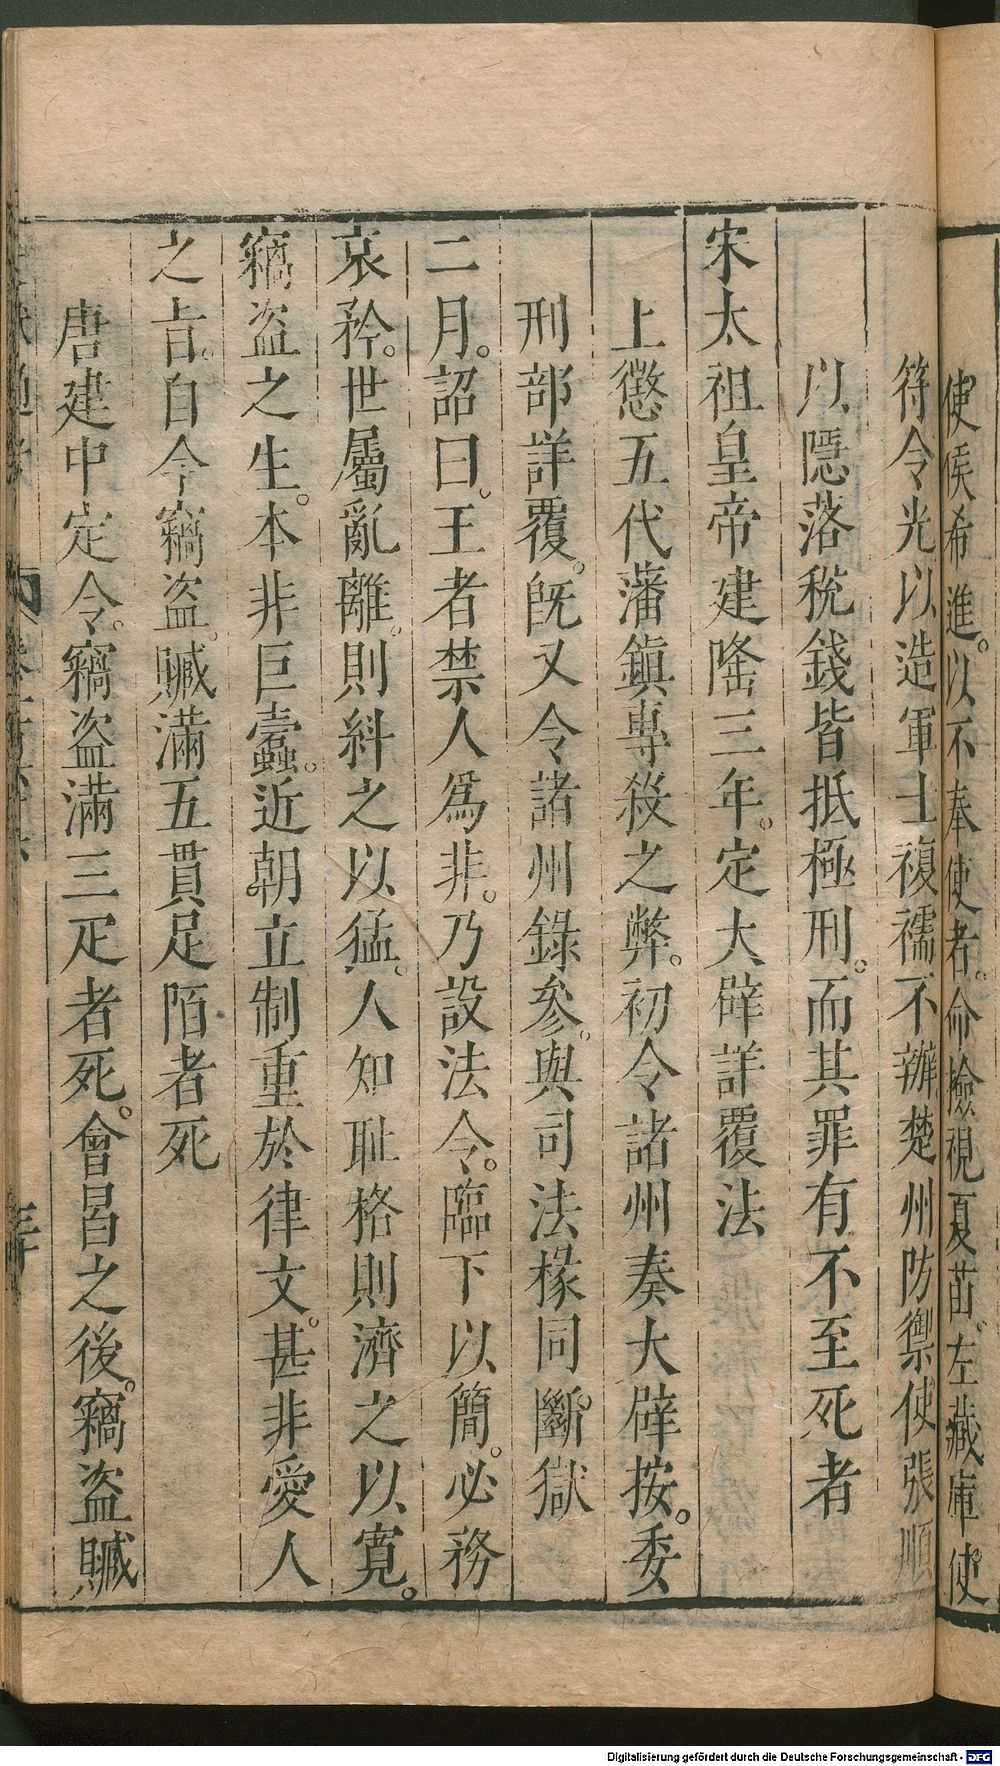 使侯希進。以不奉使者。命撿視夏苗。左藏庫使
符令光以造軍士複襦不辦。楚州防禦使張順
以隱落稅錢皆抵極刑。而其罪有不至死者
宋太祖皇帝建隆三年。定大辟詳覆法
上懲五代藩鎮專殺之弊。初令諸州奏大辟按。委
刑部詳覆。旣又令諸州錄參。與司法掾同斷獄
二月。詔曰。王者禁人爲非。乃設法令。臨下以簡。必務
哀矜。世屬亂離。則糾之以猛。人知耻格則濟之以寬。
竊盜之生。本非巨蠹。近朝立制重於律文。甚非愛人
之旨。自今竊盜。贓滿五貫足陌者死
唐建中定令。竊盜滿三疋者死。會昌之後。竊盜贓
Digitalisierung gefördert durch die Deutsche Forschungsgemeinschaft - DFG